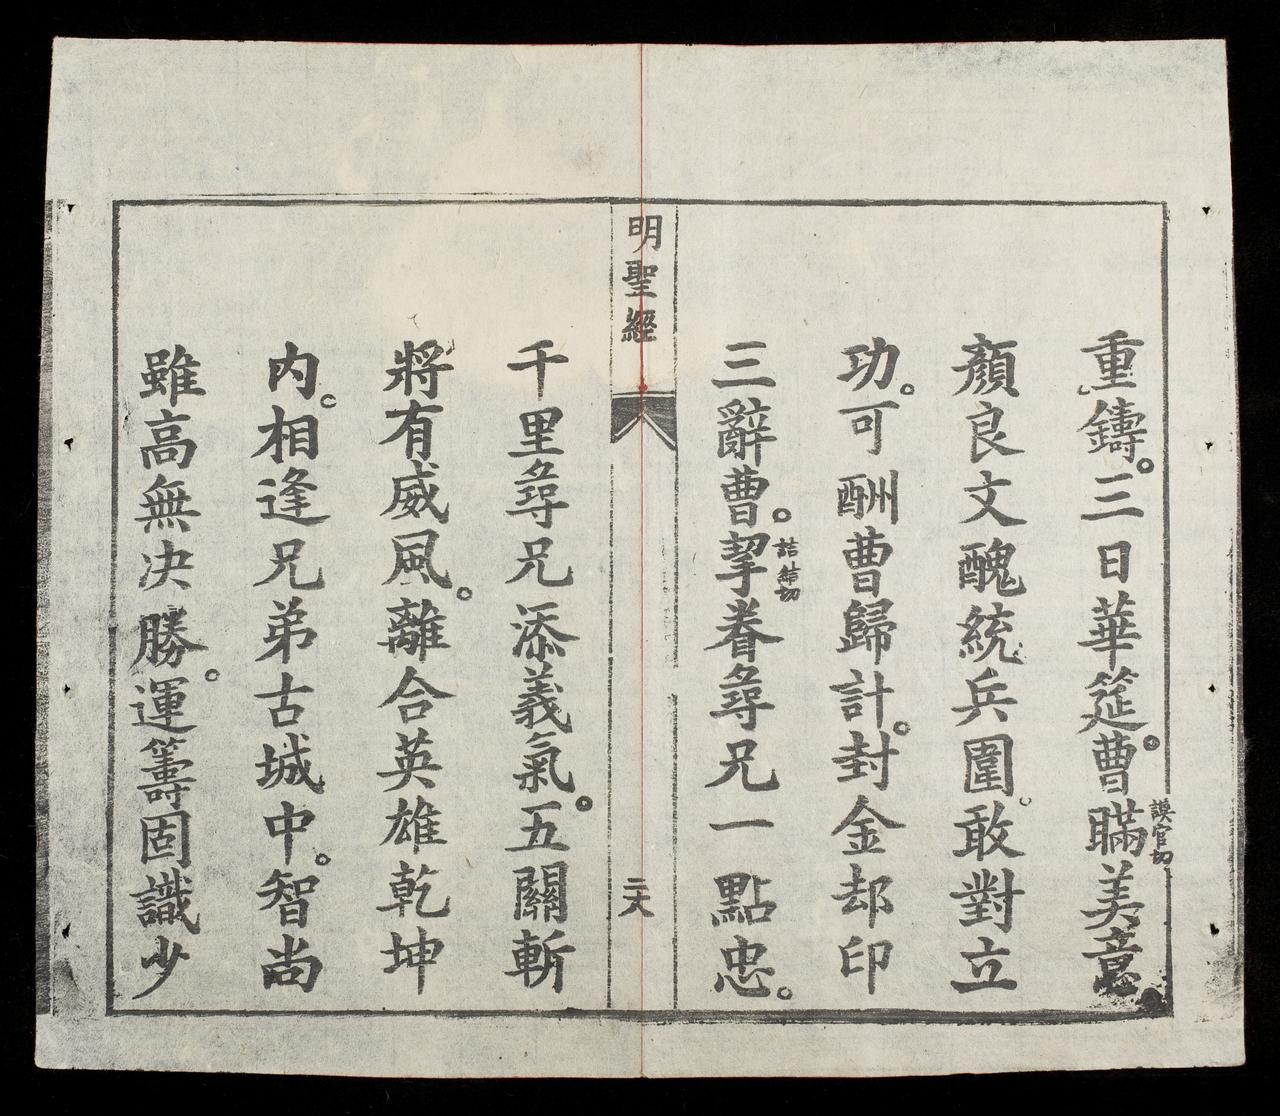 重鑄。三日華筵。曹瞞謨官切美意
顏良文醜統兵圍。敢對立
功。可酬曹歸計。封金却印
三辭曹。挈詰結切眷尋兄一點忠。
明聖經
二六
千里尋兄添義氣。五關斬
將有威風。離合英雄乾坤
内。相逢兄弟古城中。智尚
雖高無决勝。運籌固識少